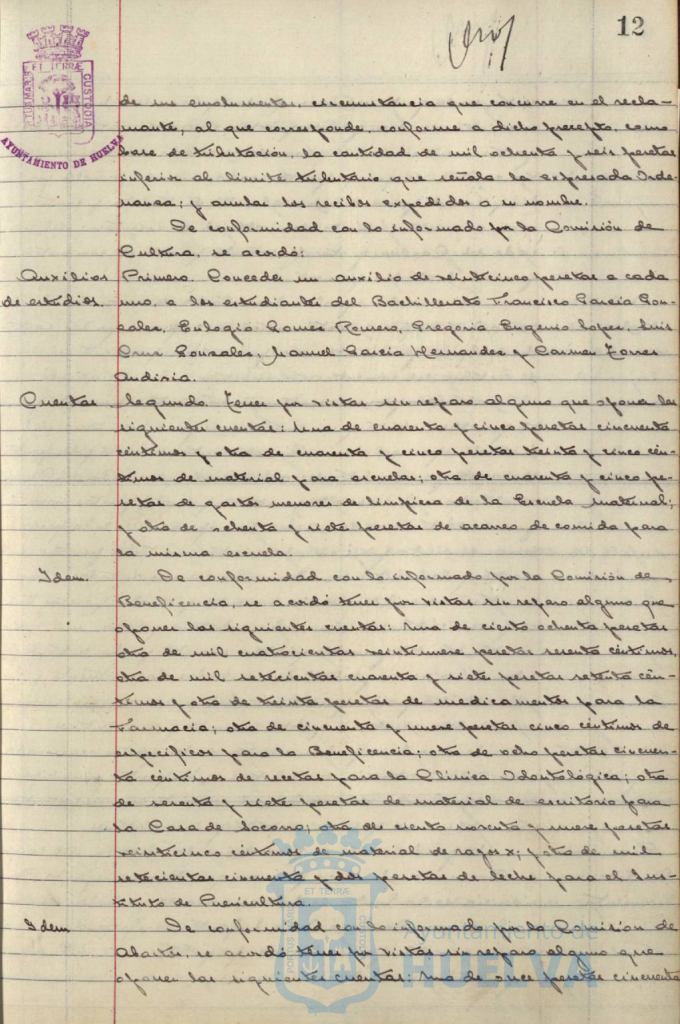 12
PORTUS MARIS ET TERRÆ CUSTODIA
AYUNTAMIENTO DE HUELVA
de sus emolumentos, circunstancia que concurre en el recla-
mante, al que corresponde, conforme a dicho precepto, como
base de tributación, la cantidad de mil ochenta y seis pesetas
inferior al límite tributario que señala la expresada Orde-
nanza; y anular los recibos expedidos a su nombre.
De conformidad con lo informado por la Comisión de
Cultura, se acordó:
Auxilios de estudios.
Primero. Conceder un auxilio de veinticinco pesetas a cada
uno, a los estudiantes del Bachillerato Francisco García Gon-
zalez, Eulogio Gomez Romero, Gregorio Eugenio Lopez, Luis
Cruz Gonzalez, Manuel García Hernandez y Carmen Torres
Cuentas.
Segundo. Tener por vistas sin reparo alguno que opona las
siguientes cuentas: Una de cuarenta y cinco pesetas cincuenta
céntimos y otra de cuarenta y cinco pesetas treinta y cinco cén-
timos de material para escuelas; otra de cuarenta y cinco pe-
setas de gastos menores de limpieza de la Escuela maternal;
y otra de ochenta y siete pesetas de acarreo de comida para
la misma escuela.
Idem.
De conformidad con lo informado por la Comisión de
Beneficencia, se acordó tener por vistas sin reparo alguno que
oponer las siguientes cuentas: Una de ciento ochenta pesetas
otra de mil cuatrocientas veintinueve pesetas sesenta céntimos,
otra de mil setecientas cuarenta y siete pesetas setenta cén-
timos y otra de treinta pesetas de medicamentos para la
Farmacia; otra de cincuenta y nueve pesetas cinco céntimos de
específicos para la Beneficencia; otra de ocho pesetas cincuen-
ta céntimos de recetas para la Clínica Odontológica; otra
de sesenta y siete pesetas de material de escritorio para
la Casa de Socorro; otra de ciento noventa y nueve pesetas
veinticinco céntimos de material de rayos x; y otra de mil
setecientas cincuenta y dos pesetas de leche para el Ins-
tituto de Puericultura.
Idem
De conformidad con lo informado por la Comisión de
Abastos, se acordó tener por vistas sin reparo alguno que
oponer las siguientes cuentas: Una de once pesetas cincuenta
Ayuntamiento de
HUELVA